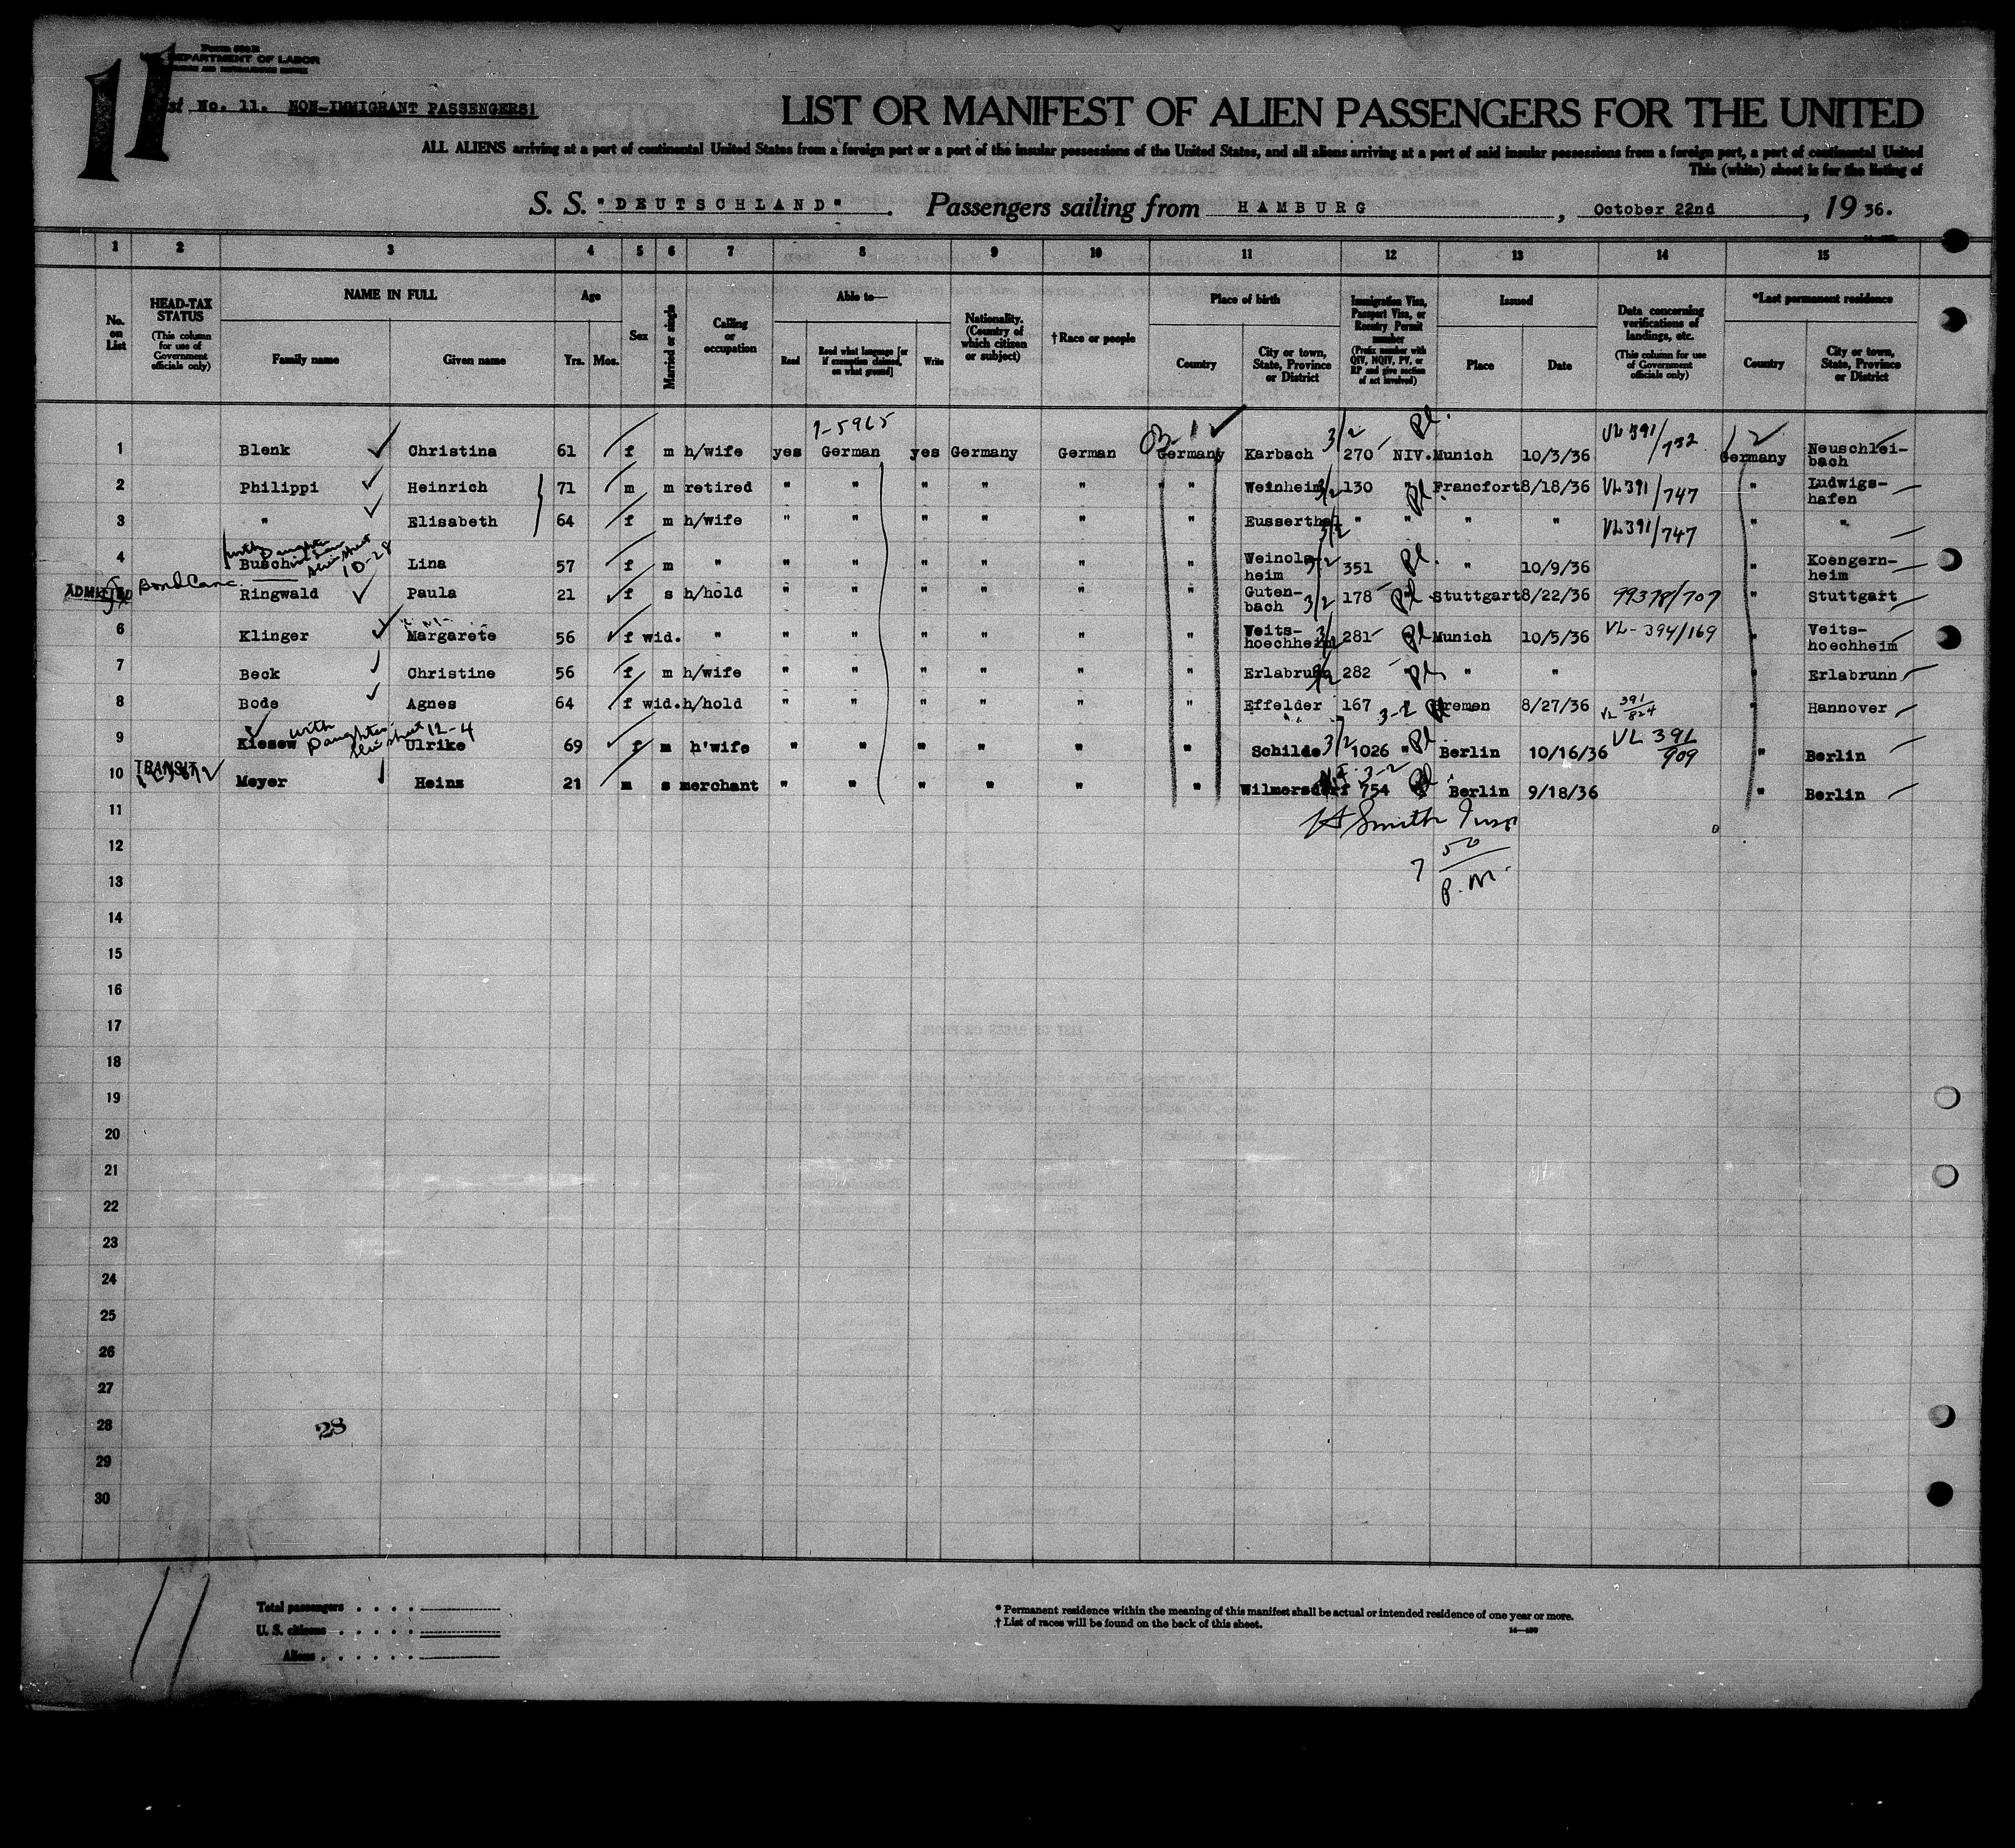 11
Form 500 B
U. S. DEPARTMENT OF LABOR
List No. 11. NON-IMMIGRANT PASSENGERS!
LIST OR MANIFEST OF ALIEN PASSENGERS FOR THE UNITED
ALL ALIENS arriving at a port of continental United States from a foreign port or a port of the insular possessions of the United States, and all aliens arriving at a port of said insular possessions from a foreign port, a port of continental United
This (white) sheet is for the listing of
S. S. "DEUTSCHLAND". Passengers sailing from HAMBURG, October 22nd, 1936.
1 2 3 4 5 6 7 8 9 10 11 12 13 14 15
No. on List
HEAD-TAX STATUS (This column for use of Government officials only)
NAME IN FULL Family name Given name
Age Yrs. Mos.
Sex
Married or single
Calling or occupation
Able to— Read Read what language [or if exemption claimed, on what ground] Write
Nationality. (Country of which citizen or subject)
†Race or people
Place of birth Country City or town, State, Province or District
Immigration Visa, Passport Visa, or Reentry Permit number (Prefix number with QIV, NQIV, PV, or RP and give section of act involved)
Issued Place Date
Data concerning verifications of landings, etc. (This column for use of Government officials only)
*Last permanent residence Country City or town, State, Province or District
7-5965
1 Blenk Christina 61 f m h/wife yes German yes Germany German Germany Karbach 3/2 270 NIV. Munich 10/3/36 VL 391/732 Germany Neuschleibach
2 Philippi Heinrich 71 m m retired " " " " " " Weinheim 3/2 130 " Francfort 8/18/36 VL 391/747 " Ludwigs-hafen
3 " Elisabeth 64 f m h/wife " " " " " " Eusserthal 3/2 " " " " VL 391/747 " "
with Daughter 10-28
4 Busch Lina 57 f m " " " " " " " Weinols-heim 3/2 351 " 10/9/36 " Koengern-heim
ADMITTED Bond Canc.
Ringwald Paula 21 f s h/hold " " " " " " Guten-bach 3/2 178 Stuttgart 8/22/36 99378/707 " Stuttgart
6 Klinger Margarete 56 f wid. " " " " " " " Veits-hoechheim 3/2 281 Munich 10/5/36 VL-394/169 " Veits-hoechheim
7 Beck Christine 56 f m h/wife " " " " " " Erlabrunn 3/2 282 " " " Erlabrunn
8 Bode Agnes 64 f wid. h/hold " " " " " " Effelder 167 3-2 Bremen 8/27/36 VL 391/824 " Hannover
with Daughter 12-4
9 Kiesow Ulrike 69 f m h'wife " " " " " " Schilde 3/2 1026 " Berlin 10/16/36 VL 391/909 " Berlin
TRANSIT
10 Meyer Heinz 21 m s merchant " " " " " " Wilmersdorf 3-2 754 Berlin 9/18/36 " Berlin
11
Smith Insp
12
7 50/P.M.
13
14
15
16
17
18
19
20
21
22
23
24
25
26
27
28 28
29
30
11
Total passengers
U. S. citizens
Aliens
* Permanent residence within the meaning of this manifest shall be actual or intended residence of one year or more.
† List of races will be found on the back of this sheet.